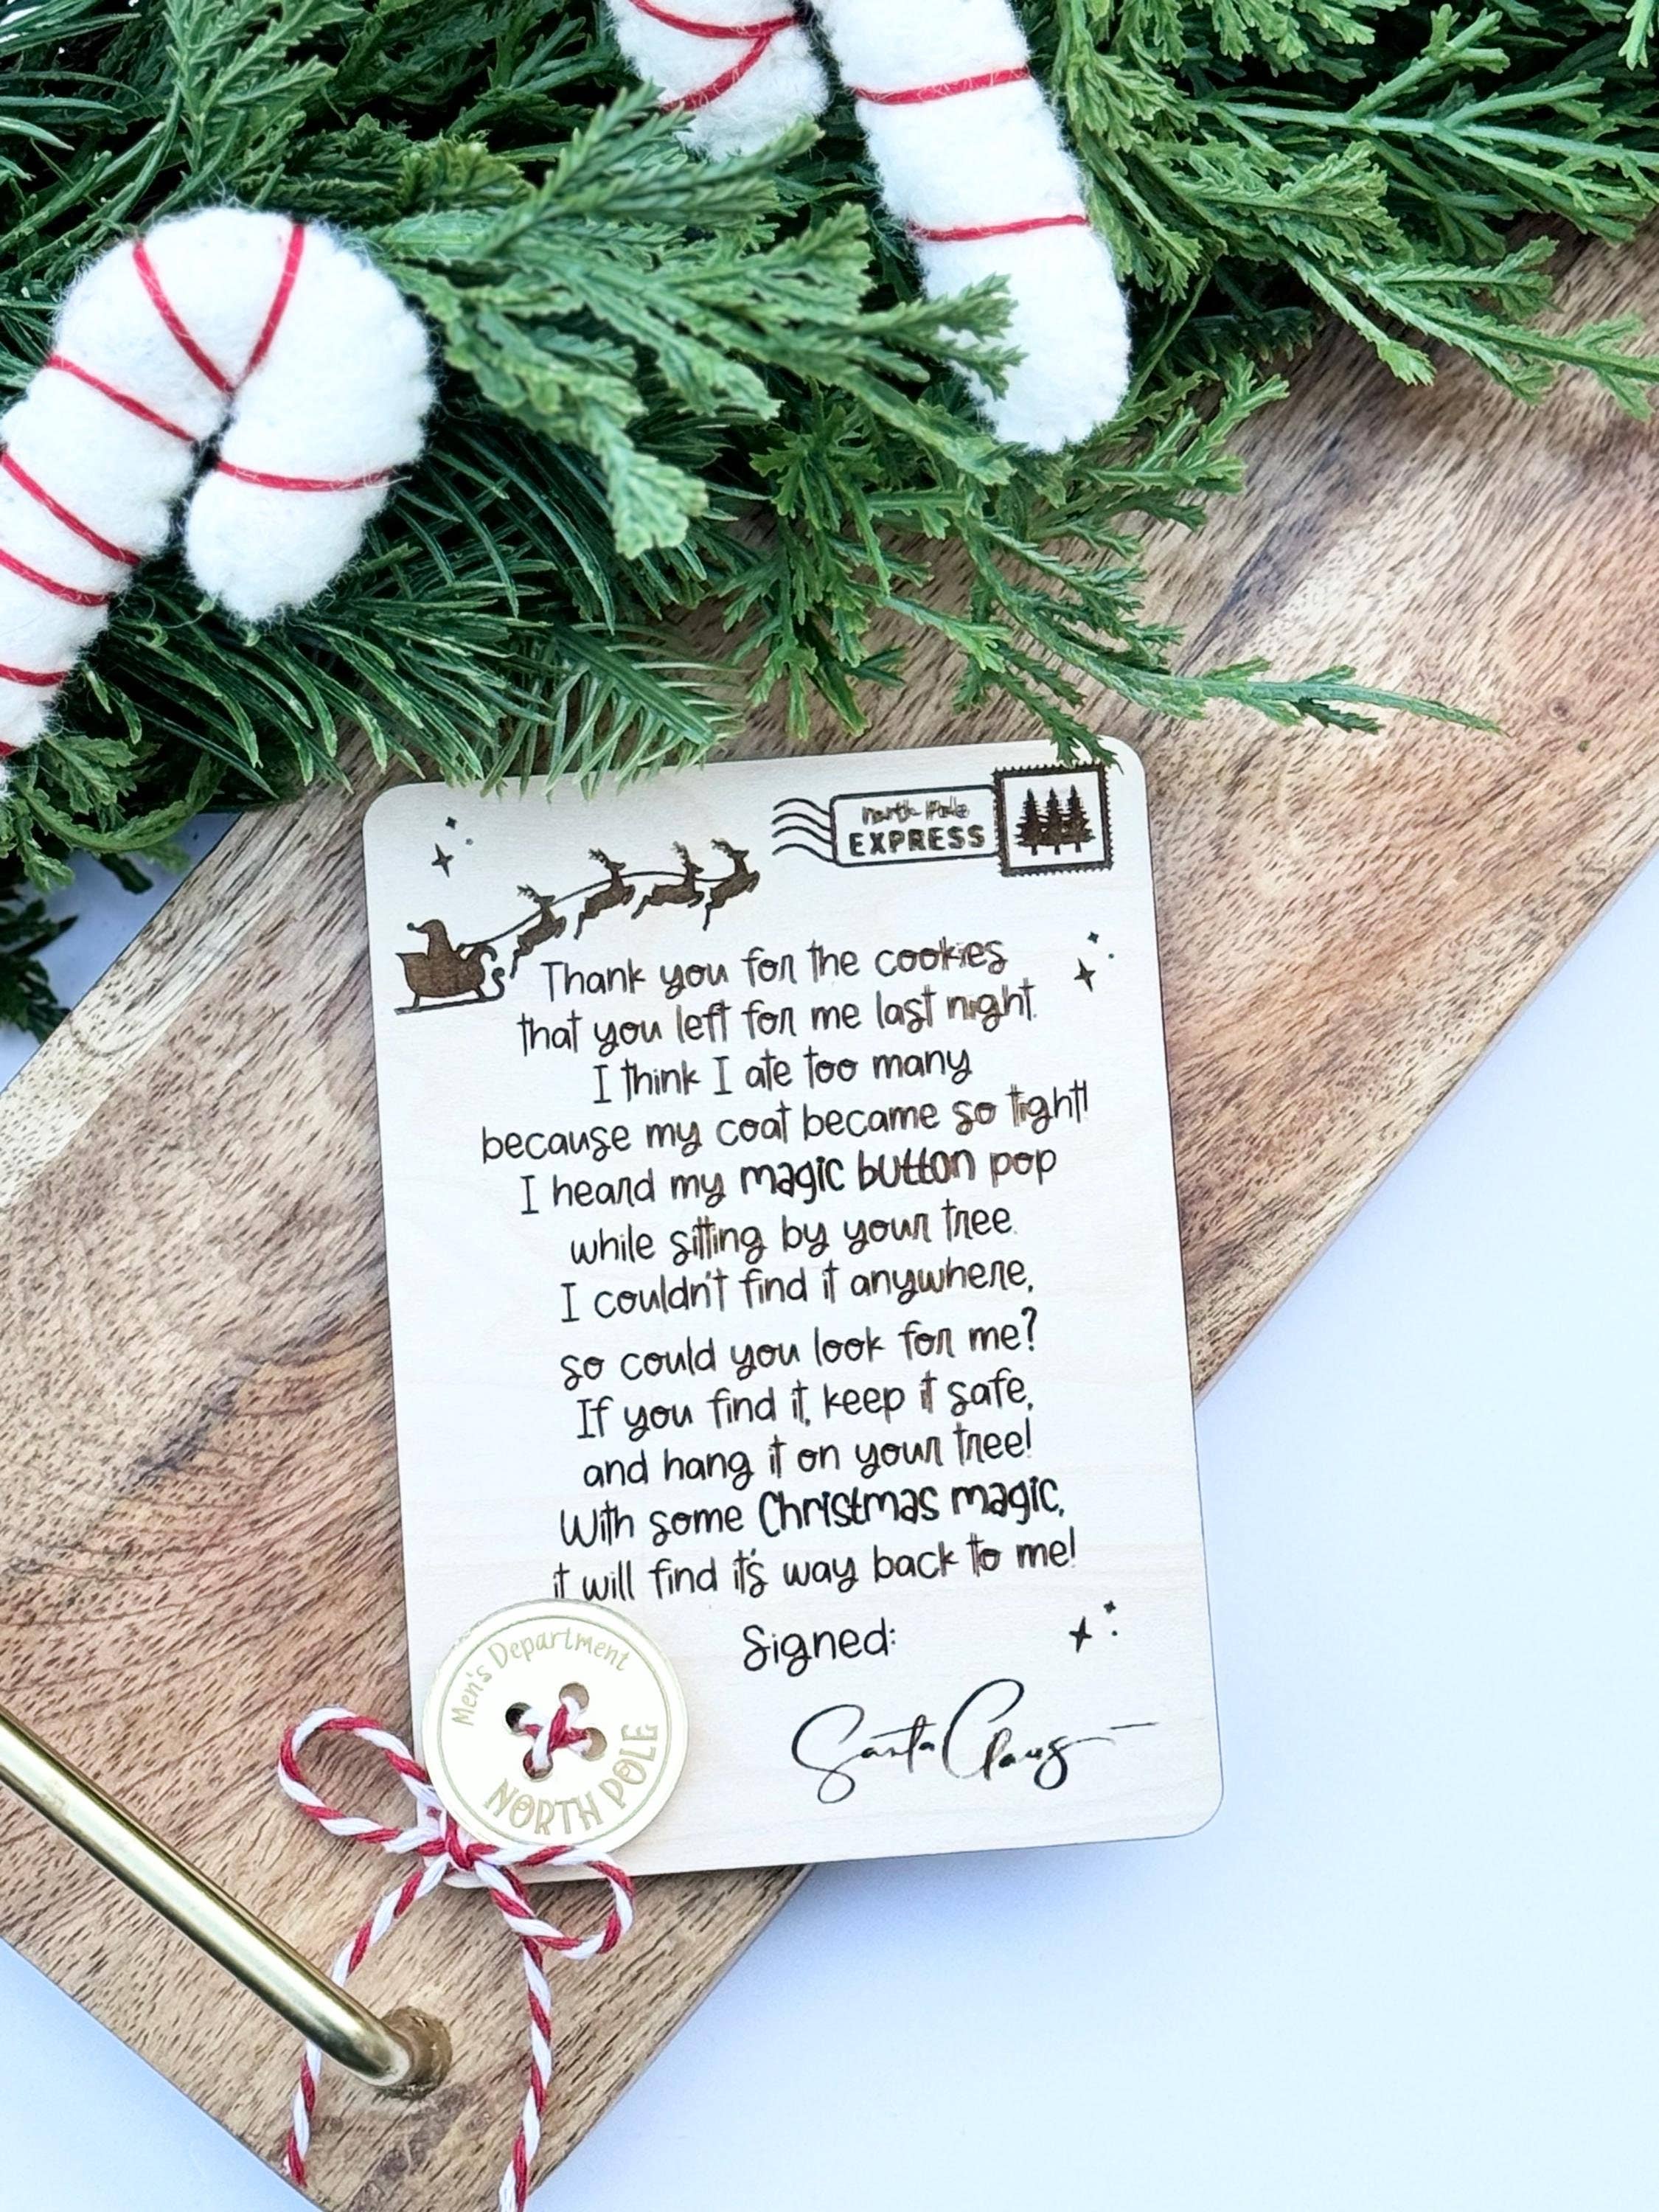 North Pole
EXPRESS
Thank you for the cookies
that you left for me last night.
I think I ate too many
because my coat became so tight!
I heard my magic button pop
while sitting by your tree.
I couldn't find it anywhere,
so could you look for me?
If you find it, keep it safe,
and hang it on your tree!
With some Christmas magic,
it will find it's way back to me!
Signed:
Santa Claus
Men's Department
NORTH POLE